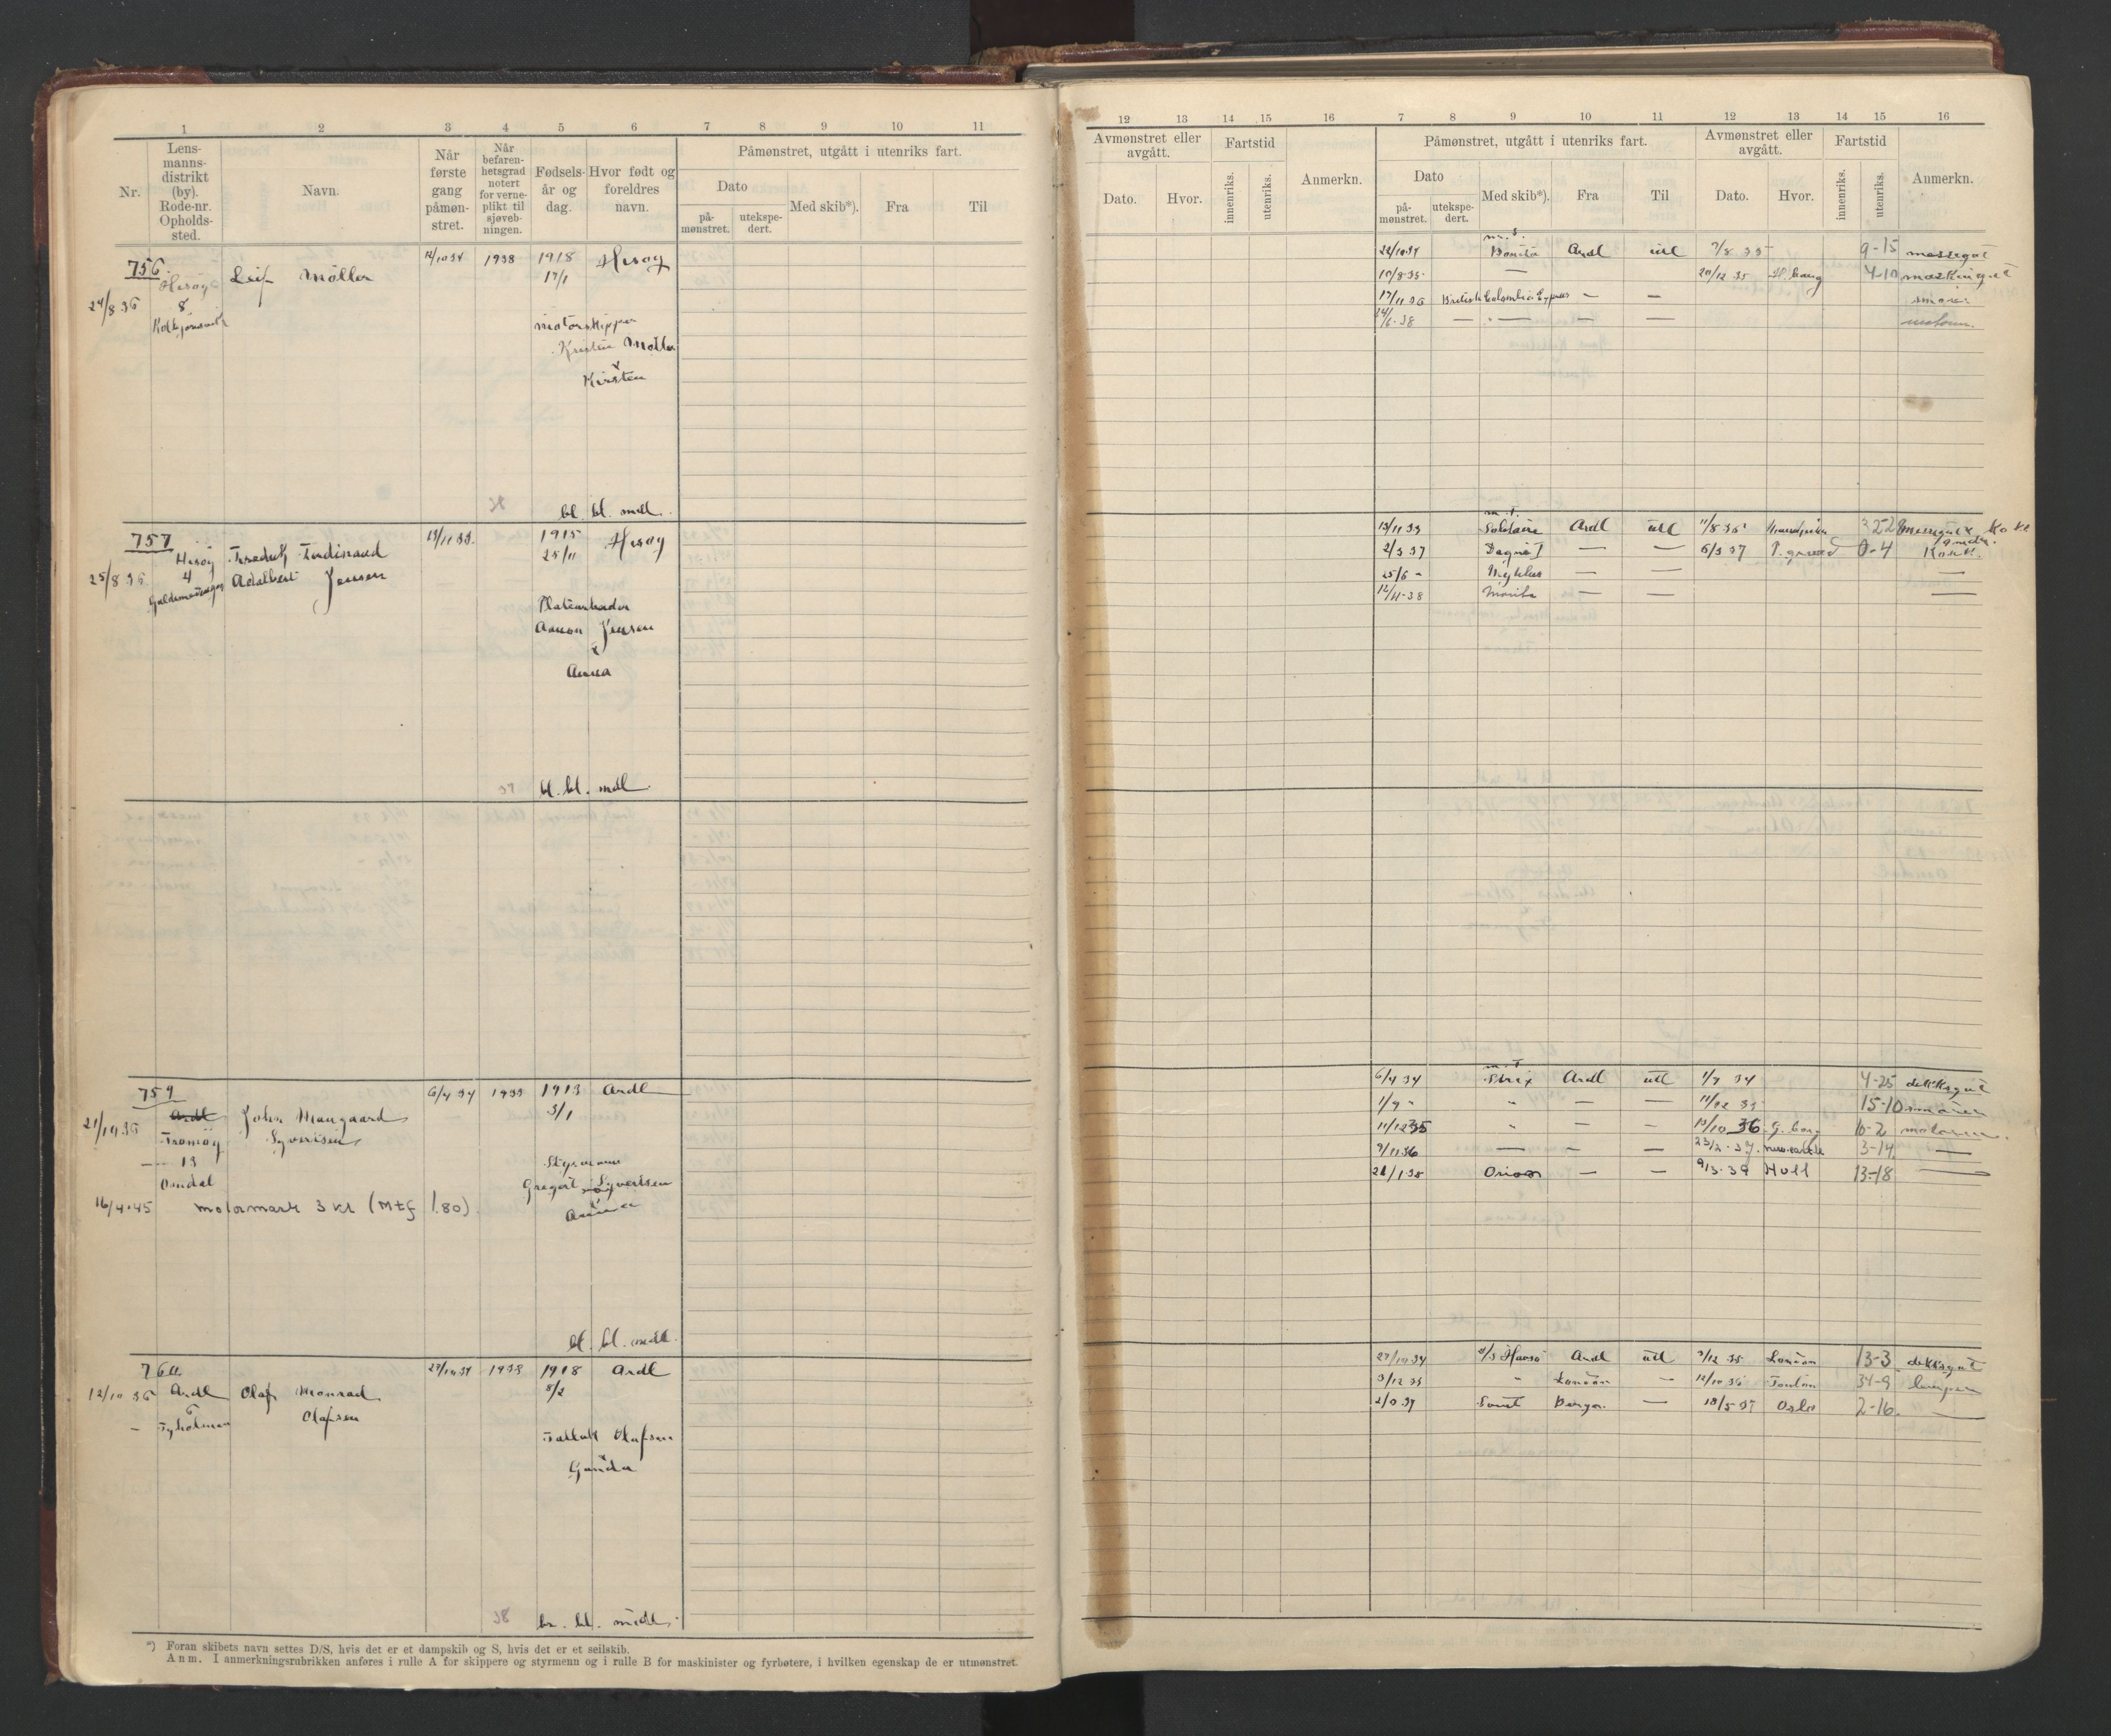 1 2 3 4 5 6 7 8 9 10 11
Nr.
Lens-
manns-
distrikt
(by).
Rode-nr.
Opholds-
sted.
Navn.
Når
første
gang
påmøn-
stret.
Når
befaren-
hetsgrad
notert
for verne-
plikt til
sjøveb-
ningen.
Fødsels-
år og
dag.
Hvor født og
foreldres
navn.
Påmønstret, utgått i utenriks fart.
Dato
på-
mønstret.
utekspe-
dert.
Med skib*).
Fra
Til
756.
24/8 36
Hisøy
8
Leif Møller
12/10 34 1938 1918 Hisøy
17/1
motorskipper
Møller
Kirsten
bl. bl. mdl.
757
25/8 36
Hisøy
4
Fredrik Ferdinand
Adalbert Jensen
13/11 33. 1915 Hisøy
25/11
Jensen
Anna
bl. bl. mdl.
759
21/10 36
Ardl
Tromøy
13
Omdal
John Maugaard
Syvertsen
6/4 34 1933 1913 Ardl
3/1
Styrmann
Gregert Syvertsen
16/4-45 motormask 3 kl (Mtf 1.80)
bl. bl. mdl.
760
12/10 36 Ardl
Tyholmen
Olaf Monrad
Olafsen
27/10 34 1938 1918 Ardl
8/2
Olafsen
Gunda
38
br. bl. midl.
*) Foran skibets navn settes D/S, hvis det er et dampskib og S, hvis det er et seilskib.
Anm. I anmerkningsrubrikken anføres i rulle A for skippere og styrmenn og i rulle B for maskinister og fyrbøtere, i hvilken egenskap de er utmønstret.
12 13 14 15 16 7 8 9 10 11 12 13 14 15 16
Avmønstret eller
avgått.
Dato.
Hvor.
Fartstid
innenriks.
utenriks.
Anmerkn.
Påmønstret, utgått i utenriks fart.
Dato
på-
mønstret.
utekspe-
dert.
Med skib*).
Fra
Til
Avmønstret eller
avgått.
Dato.
Hvor.
Fartstid
innenriks.
utenriks.
Anmerkn.
m.s.
22/10 34 Bonita Ardl utl 7/8 35 9-15 messegut
10/8 35 — 20/12 35 4-10 maskingut
17/11 36 British Columbia Express — — smører
24/6-38 — — — — motorm.
m.t.
13/11 33 Solitaire Ardl utl 11/8 36
2/3 37 Dagny I — — 6/3 37 0-4 Kokk.
25/6 - — — —
12/11-38 — — —
m.t.
6/4 34 Strix Ardl utl 1/9 34 4-25 dekksgut
1/9 " " — — 11/12 35 15-10 smører
11/12 35 " — — 13/10 36 G.borg 10-2 motorm.
9/11 36 — — — 23/2-37. Newcastle 3-14 —
21/1 38 Orion — — 9/3-39 Hull 13-18 —
27/10 34 Ardl utl 3/12 35 London 13-3 dekksgut
3/12 35 " London — 12/10 36 34-9 lemper
2/3 37 — 18/5 37 Oslo 2-16. —